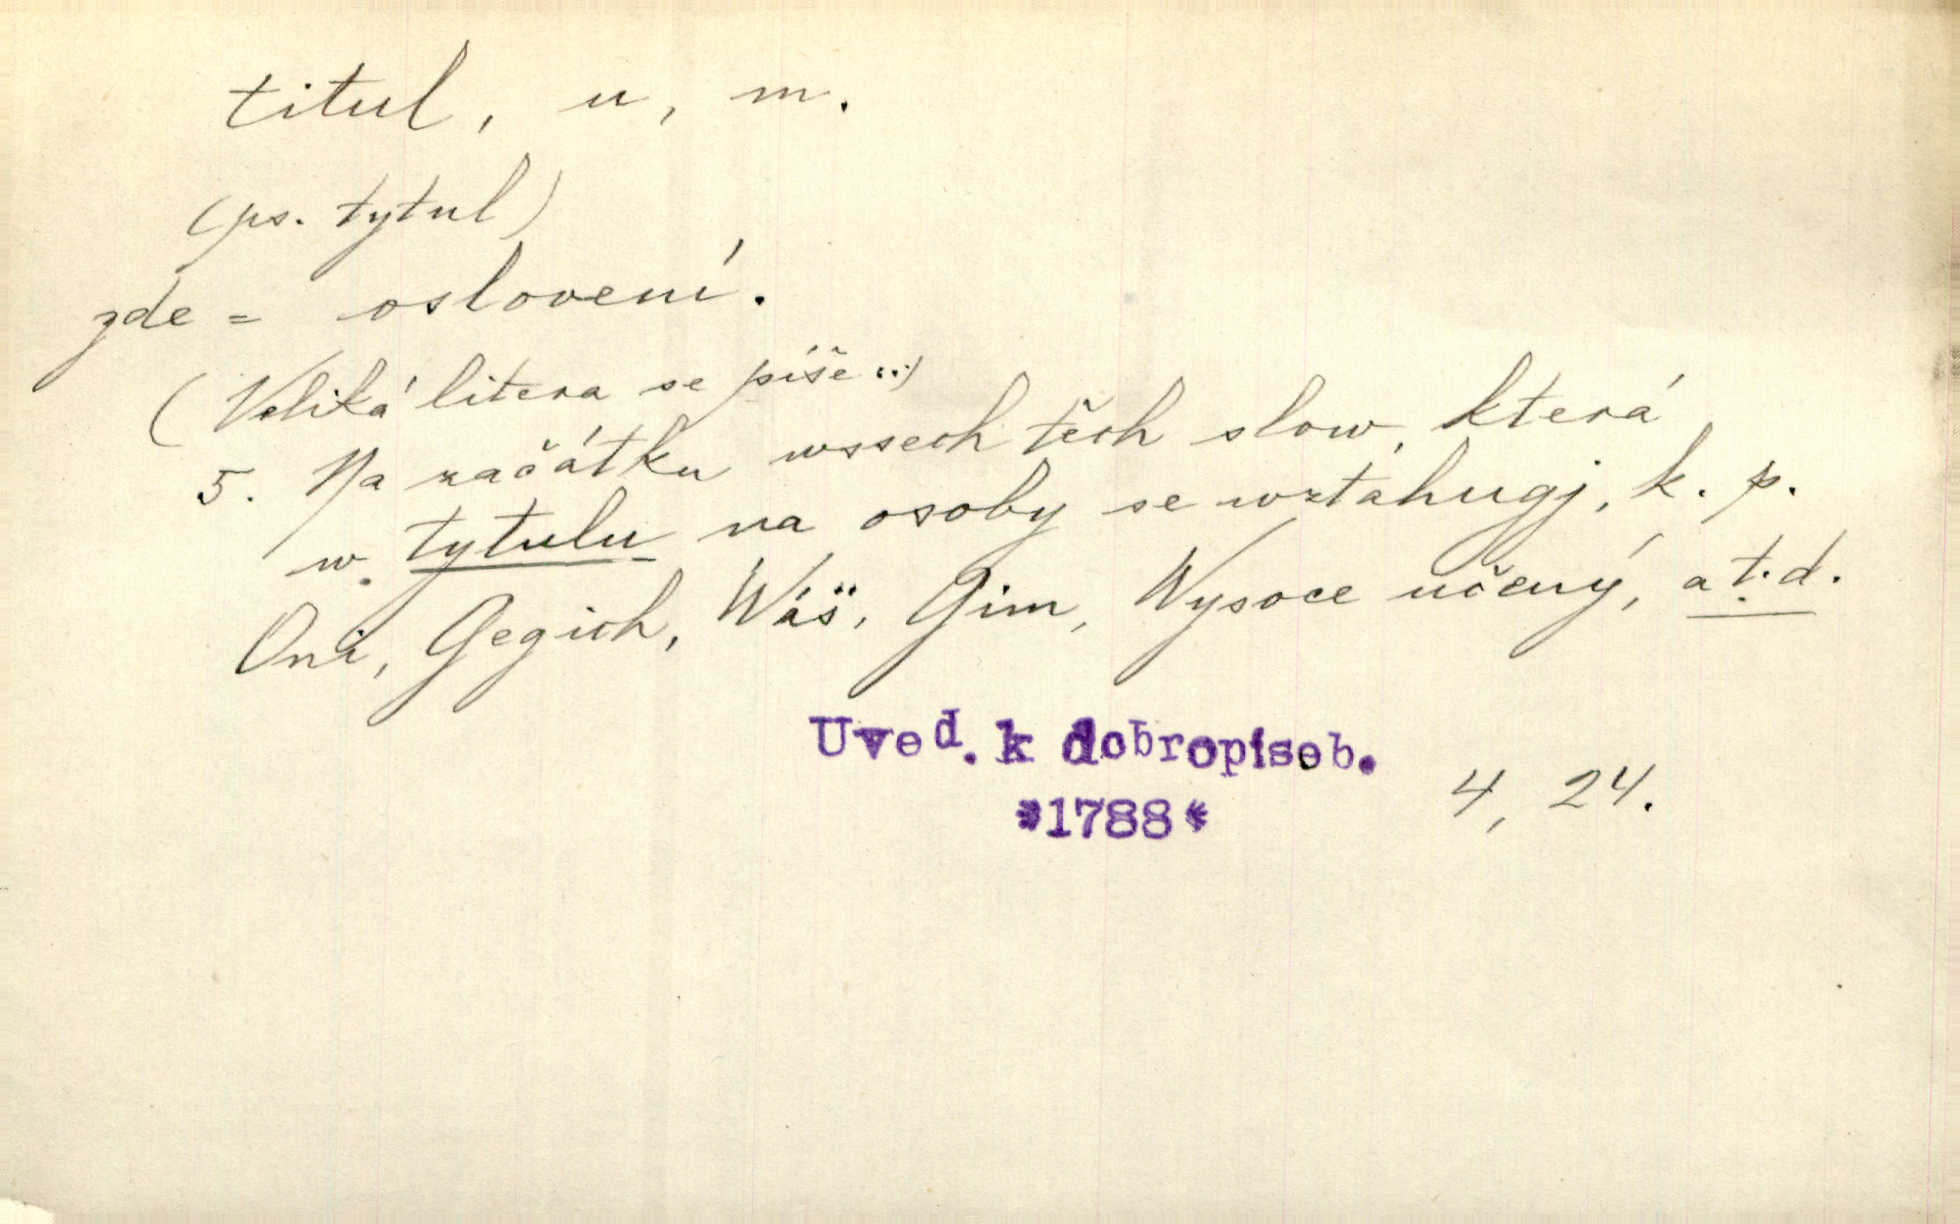 titul, u, m.
(ps. tytul)
zde = oslovení.
(Veliká litera se píše...)
5. Na začátku wssech těch slow, která
w tytulu na osoby se wztahugj, k. p.
Oni, Gegich, Wáš, Gim, Wysoce učený, a t. d.
Uved. k dobropiseb.
*1788*
4, 24.